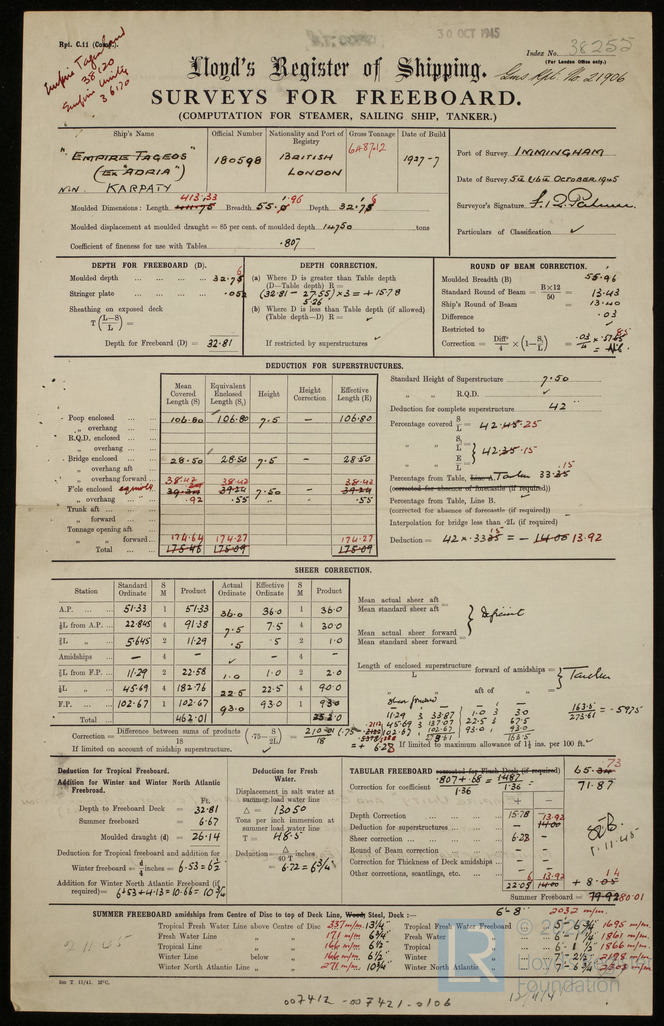 Rpt. C.11 (Comp.).
30 OCT 1945
Index No. 38255
(For London Office only.)
Empire Tageos
38,120
Empire Unity
36170
Lloyd's Register of Shipping.
Gms Rpt. No. 21906
SURVEYS FOR FREEBOARD.
(COMPUTATION FOR STEAMER, SAILING SHIP, TANKER.)
Ship's Name Official Number Nationality and Port of Registry Gross Tonnage Date of Build
"EMPIRE TAGEOS" 180598 BRITISH 1927-7
(Ex "ADRIA") LONDON
N.N. KARPATY
Port of Survey IMMINGHAM
Date of Survey 5th & 16th OCTOBER 1945
Surveyor's Signature
Particulars of Classification ✓
Moulded Dimensions: Length 413.33 Breadth 55. Depth 32.
Moulded displacement at moulded draught = 85 per cent. of moulded depth 14750 tons
Coefficient of fineness for use with Tables .807
DEPTH FOR FREEBOARD (D).
Moulded depth 32.75
Stringer plate .05
Sheathing on exposed deck
T(L-S/L) =
Depth for Freeboard (D) = 32.81
DEPTH CORRECTION.
(a) Where D is greater than Table depth
(D—Table depth) R =
(32.81 - 27.55) × 3 = + 15.78
5.26
(b) Where D is less than Table depth (if allowed)
(Table depth—D) R = ✓
If restricted by superstructures ✓
ROUND OF BEAM CORRECTION.
Moulded Breadth (B) 55.96
Standard Round of Beam = B×12/50 = 13.43
Ship's Round of Beam = 13.40
Difference .03
Restricted to ✓
Correction = Diffce/4 × (1-S₁/L) = .03/4 × = Nil.
DEDUCTION FOR SUPERSTRUCTURES.
Mean Covered Length (S) Equivalent Enclosed Length (S₁) Height Height Correction Effective Length (E)
Poop enclosed 106.80 106.80 7.5 – 106.80
" overhang
R.Q.D. enclosed
" overhang
Bridge enclosed 28.50 28.50 7.5 – 28.50
" overhang aft
" overhang forward
F'cle enclosed 38.42 39.24 7.50 – 39.24
" overhang .92 .55 .55
Trunk aft
" forward
Tonnage opening aft
" " forward 174.64 174.27 174.27
Total 175.46 175.09 175.09
Standard Height of Superstructure 7.50
" " R.Q.D. ✓
Deduction for complete superstructure 42"
Percentage covered S/L = 42.45.25
" " S₁/L =
" " E/L = 42.35.15
Percentage from Table, Line A. Tanker 33.35 .15
(corrected for absence of forecastle (if required))
Percentage from Table, Line B.
(corrected for absence of forecastle (if required))
Interpolation for bridge less than ·2L (if required)
Deduction = 42 × 33.35 = - 14.00 13.92
SHEER CORRECTION.
Station Standard Ordinate S M Product Actual Ordinate Effective Ordinate S M Product
A.P. 51.33 1 51.33 36.0 36.0 1 36.0
⅙L from A.P. 22.845 4 91.38 7.5 7.5 4 30.0
⅓L " 5.645 2 11.29 .5 .5 2 1.0
Amidships – 4 – ✓ – 4 –
⅓L from F.P. 11.29 2 22.58 1.0 1.0 2 2.0
⅙L " 45.69 4 182.76 22.5 22.5 4 90.0
F.P. 102.67 1 102.67 93.0 93.0 1 93.0
Total 462.01 252.0
Mean actual sheer aft =
Mean standard sheer aft
Mean actual sheer forward =
Mean standard sheer forward
Deficient
Length of enclosed superstructure / L forward of amidships =
" " aft of " =
Tanker
Sheer forward
11.29 3 33.87 1.0 3 3.0
45.69 3 137.07 22.5 3 67.5
102.67 1 102.67 93.0 1 93.0
273.61 163.5
163.5/273.61 = .5975
Correction = Difference between sums of products/18 (·75 – S/2L) = 210.01/18 (.75 –
= + 6.28
If limited on account of midship superstructure. ✓
If limited to maximum allowance of 1½ ins. per 100 ft. ✓
Deduction for Tropical Freeboard.
Addition for Winter and Winter North Atlantic Freeboard.
Ft.
Depth to Freeboard Deck = 32.81
Summer freeboard = 6.67
Moulded draught (d) = 26.14
Deduction for Tropical freeboard and addition for
Winter freeboard = d/4 inches = 6.53 = 6½"
Addition for Winter North Atlantic Freeboard (if required) = 6.53 + 4.13 = 10.66 = 10¾
Deduction for Fresh Water.
Displacement in salt water at summer load water line
Δ = 13050
Tons per inch immersion at summer load water line
T = 48.5
Deduction = Δ/40 T inches
= 6.72 = 6¾"
TABULAR FREEBOARD corrected for Flush Deck (if required) 65. 73
Correction for coefficient .807 + .68/1.36 = 1.487/1.36 = 71.87
+ –
Depth Correction 15.78 13.92
Deduction for superstructures – 14.00
Sheer correction 6.28 –
Round of Beam correction – –
Correction for Thickness of Deck amidships –
Other corrections, scantlings, etc. –
22.05 14.00 + 8.05
Summer Freeboard = 79.92 80.01
SUMMER FREEBOARD amidships from Centre of Disc to top of Deck Line, Wood, Steel, Deck:— 6'-8" 2032 m/m.
Tropical Fresh Water Line above Centre of Disc 337 m/m. 13¼" Tropical Fresh Water Freeboard 5'-6¾" 1695 m/m.
Fresh Water Line " " 171 m/m. 6¾" Fresh Water " 6'-1¼" 1861 m/m.
Tropical Line " " 166 m/m. 6½" Tropical " 6'-1½" 1866 m/m.
Winter Line below " 166 m/m. 6½" Winter " 7'-2½" 2198 m/m.
Winter North Atlantic Line " " 271 m/m. 10¾" Winter North Atlantic " 7'-6¾" 2303 m/m.
2.11.45
5m T 11/41. MºC.
007412-007421-0106
LR
Lloyd's Register
Foundation